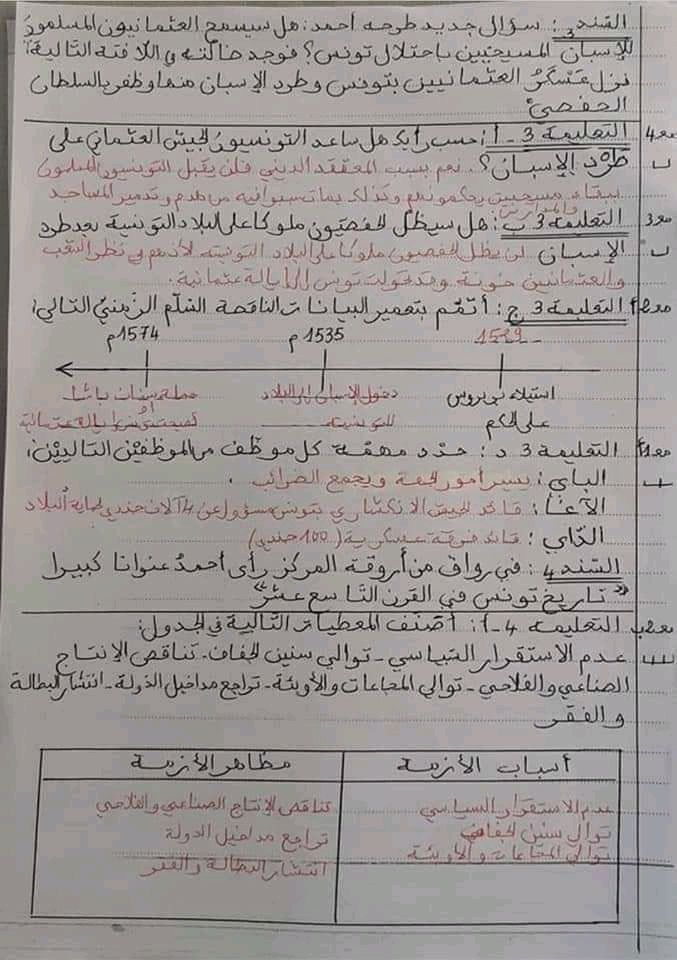 السند 3: سؤال جديد طرحه أحمد: هل سيسمح العثمانيون المسلمون
للإسبان المسيحيين باحتلال تونس؟ فوجد ضالته في اللافتة التالية:
نزل عسكر العثمانيين بتونس وطرد الإسبان منها وظفر بالسلطان
الحفصي
مع4 التعليمة 3 - أ: حسب رأيك هل ساعد التونسيون الجيش العثماني على
طرد الإسبان؟ نعم بسبب المعتقد الديني فلن يقبل التونسيون المسلمون
ببقاء مسيحيين يحكمونهم وكذلك بما تسببوا فيه من هدم وتدمير المساجد
والمدارس
مع3 التعليمة 3 ب: هل سيظل الحفصيون ملوكا على البلاد التونسية بعد طرد
الإسبان لن يظل الحفصيون ملوكا على البلاد التونسية لأنهم في نظر الشعب
والعثمانيين خونة وقد تحولت تونس إلى إيالة عثمانية.
التعليمة 3 ج: أتمم بتعمير البيانات الناقصة السلم الزمني التالي:
1529 1535م 1574م
استيلاء على الحكم
دخول الإسبان إلى البلاد التونسية
حملة سنان باشا
التعليمة 3 د: حدد مهمة كل موظف من الموظفين التاليين:
الباي: يسير أمور المحلة ويجمع الضرائب.
الآغا: قائد الجيش الانكشاري بتونس مسؤول عن 4 آلاف جندي لحماية البلاد
الداي: قائد فرقة عسكرية (100 جندي)
السند 4: في رواق من أروقة المركز رأى أحمد عنوانا كبيرا
"تاريخ تونس في القرن التاسع عشر"
التعليمة 4 - أ: أصنف المعطيات التالية في الجدول:
عدم الاستقرار السياسي - توالي سنين الجفاف - تناقص الإنتاج
الصناعي والفلاحي - توالي المجاعات والأوبئة - تراجع مداخيل الدولة - انتشار البطالة
والفقر
أسباب الأزمة مظاهر الأزمة
عدم الاستقرار السياسي تناقص الإنتاج الصناعي والفلاحي
توالي سنين الجفاف تراجع مداخيل الدولة
توالي المجاعات والأوبئة انتشار البطالة والفقر